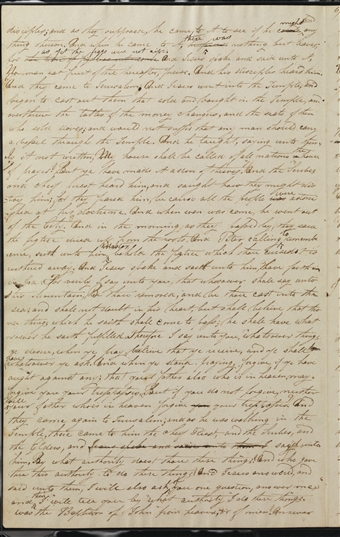 disciples, and as they supposed, he came to it to see if he might find any
thing thereon. And when he came to it, there was nothing but leaves;
for as yet the figs are not ripe. And Jesus spoke and said unto it,
No man eat fruit of thee hereafter, forever. And his disciples heard him.
And they came to Jerusalem. And Jesus went into the Temple, and
began to cast out them that sold and bought in the Temple, and
overthrew the tables of the money changers, and the seats of them
who sold doves; and would not suffer that any man should carry
a vessel through the Temple. And he taught, saying unto them,
is it not written, My house shall be called of all nations a house
of prayer? But ye have made it a den of thieves. And the Scribes
and chief priest heard him, and sought how they might des-
troy him; for they feared him, because all the people was aston-
ished at his doctrine. And when even was come, he went out
of the City. And in the morning, as they passed by, they saw
the figtree dried up from the roots. And Peter calling to remembr-
ance, saith unto him, Master, behold, the figtree which thou cursedst is
withered away. And Jesus spoke and saith unto him, have faith in
God. For verily I say unto you, that whosoever shall say unto
this Mountain, Be thou removed, and be thou cast into the
sea; and shall not doubt in his heart, but shall believe that tho
se things which he saith shall come to pass; he shall have what-
soever he saith fulfilled. Therefore I say unto you, Whatsoever things
ye desire, when ye pray, believe that ye receive, and ye shall have
whatsoever ye ask. And when ye stand praying, forgive if ye have
aught against any; that your father also who is in heaven, may
forgive you your trespasses. But if you do not forgive, neither will
your father who is in heaven forgive your trespasses. And
they came again to Jerusalem; and as he was walking in the
Temple, there came to him the chief Priest, and the Scribes, and
the Elders, and said unto
him, By what authority doest thou these things? And who gave
thee this authority to do these things? And Jesus answered, and
said unto them, I will also ask of you one question, answer me
and then I will tell you by what authority I do these things.
was the Baptism of John from heaven, or of man? Answer